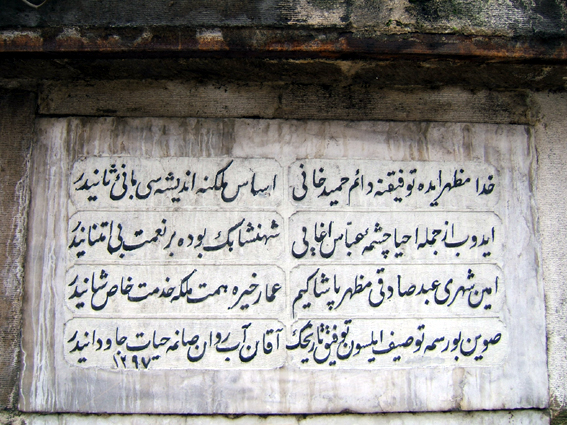 خدا مظهر ایده توفیقنه دائم حمید خانی اساس ملکنه اندیشه سی بانئ ثانیدر
ایدوب از جمله احیا چشمهٔ عباس اغایی شهنشابك بوده بر نعمت بی امتنانیدر
امین شهری عبد صادقی مظهر پاشا کیم عمار خیره همت ملکه خدمت خاص شانیدر
صوین بورسمه توصیف ایلسون توفیق تاریخك آقان آب روان صانمه حیات جاودانیدر
١٢٩٧